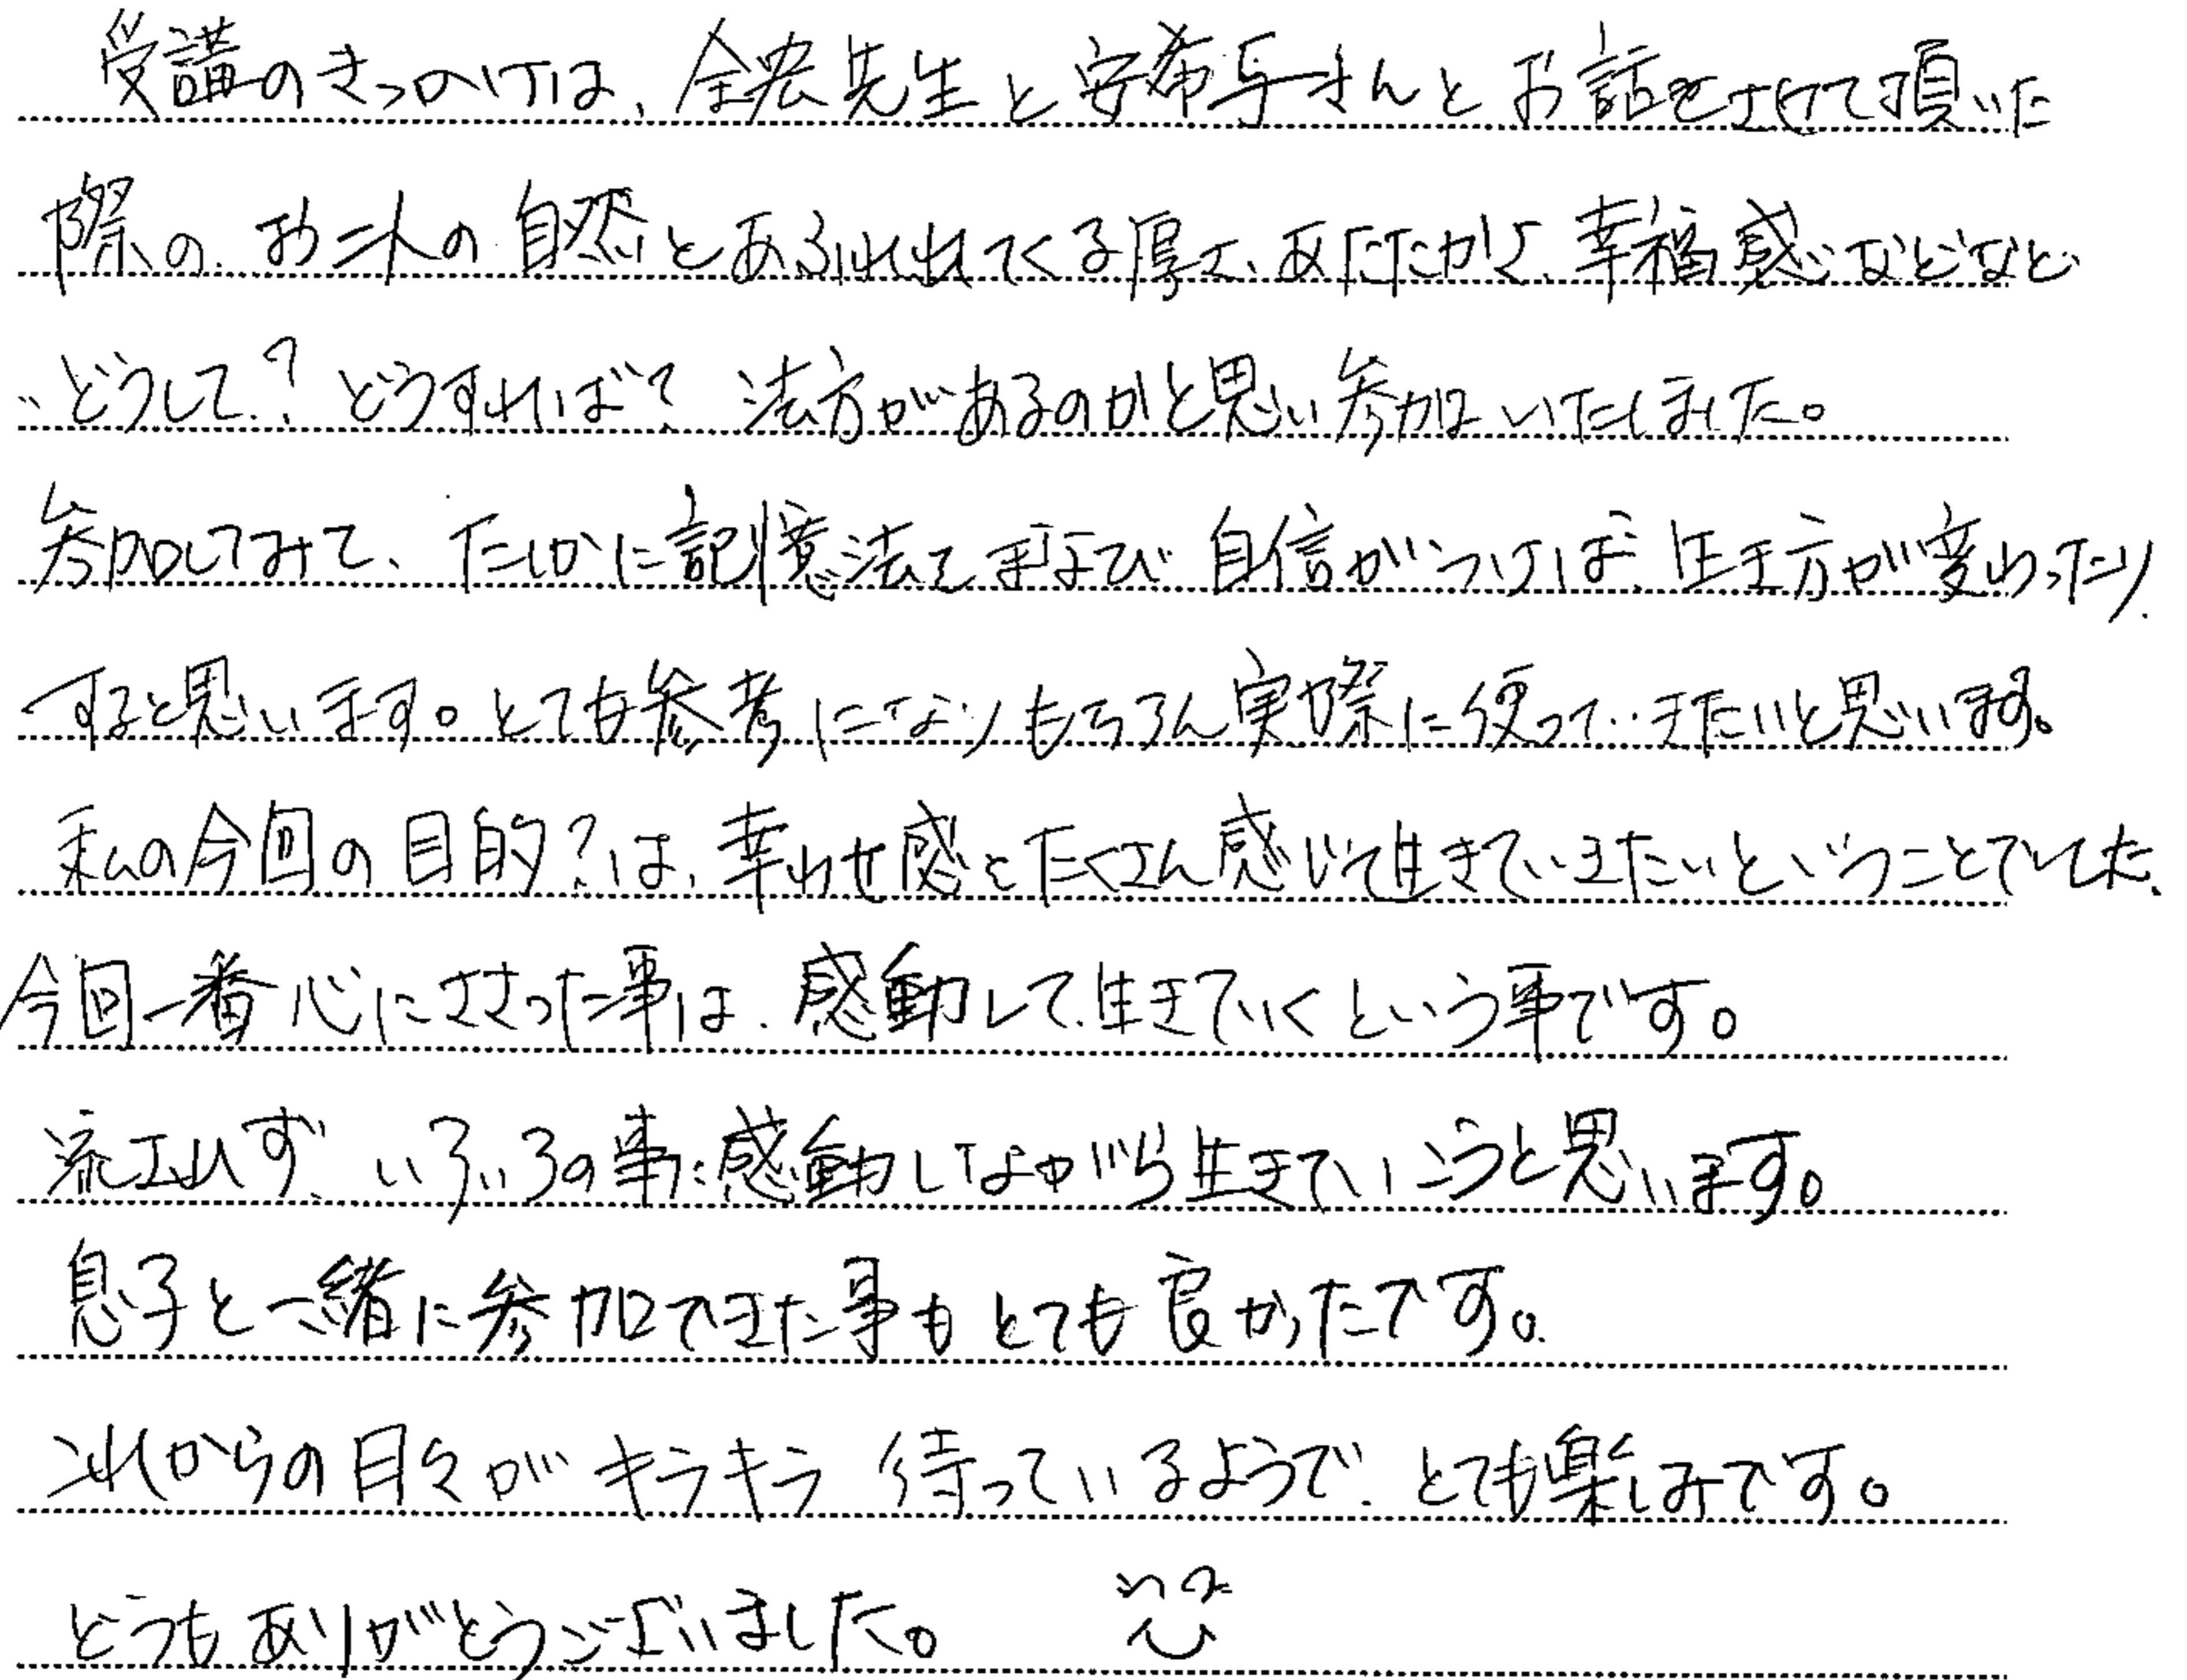 受講のきっかけは、全宏先生と安希与さんとお話をさせて頂いた
際の、お二人の自然とあふれれてくる厚さ、あたたかさ、幸福感などなど
、、どうして？どうすれば？法方があるのかと思い参加いたしました。
参加してみて、たしかに記憶法を学び自信がつけば、生き方が変わったり
すると思います。とても参考になりもちろん実際に使って いきたいと思います。
私の今回の目的？は、幸わせ感をたくさん感じて生きていきたいということでした、
今回一番心にささった事は、感動して生きていくという事です。
流されず、いろいろの事に感動しながら生きていこうと思います。
息子と一緒に参加できた事もとても良かったです。
これからの日々がキラキラ待っているようで、とても楽しみです。
どうもありがとうございました。